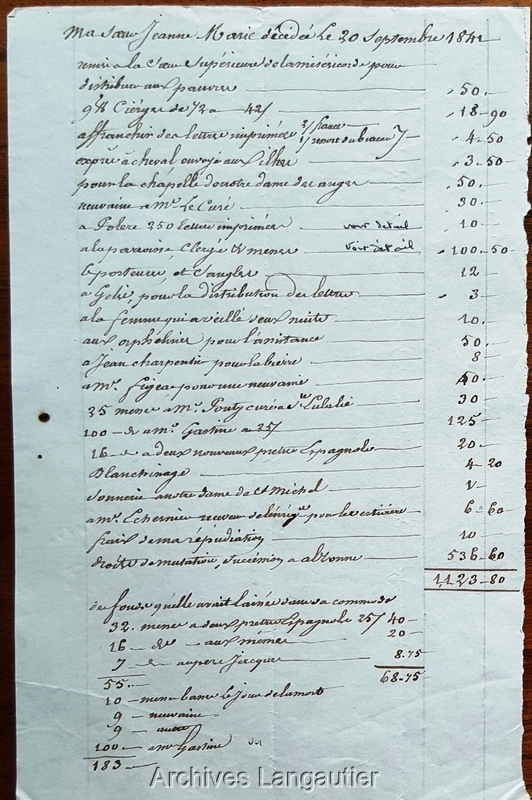 Ma Sœur Jeanne Marie décédée Le 20 Septembre 1841
remis a la Sœur Supérieure de la miséricorde pour
distribuer aux pauvres 50.
Cierges de 72 a 42 18-90
affranchir des lettres imprimées 4-50
exprès a cheval envoyé aux ilhes 3-50
pour la chapelle de notre dame des anges 50.
neuvaine a Mr. Le Curé 30.
a Polere 250 lettres imprimées voir detail 10
a la paroisse, Clergé & messes voir detail 100-50
le porteurs, et Sangles 12
a Gelis, pour la distribution des lettres 3
a la femme qui a veillé deux nuits 10.
aux orphélines pour l'assistance 50.
a Jean charpentier pour la bierre 8
a Mr. figeac pour une neuvaine 40.
25 messes a Mr. Pouty curé a Ste Eulalie 30
100 — de a Mr. Gastine a 25/ 125
16 — d a deux nouveaux pretres Espagnols 20.
Blanchissage 4-20
Sonnerie a notre dame de St Michel
a Mr. Lechernier receveur de l'enrigt. pour le 6-60
frais de ma repudiation 10
droits de mutation, Succession a alzonne 536-60
1123-80
de fonds qu'elle avait laissé dans sa commode
32. messes a deux pretres Espagnols 25/ 40-
16 — de — aux mêmes 20-
7 — d au pere Jacques 8-75
55. 68-75
10 — messes basses le jour de la mort
9 — neuvaine
9 — autre
100 — a mr Gastine
183
Archives Langautier